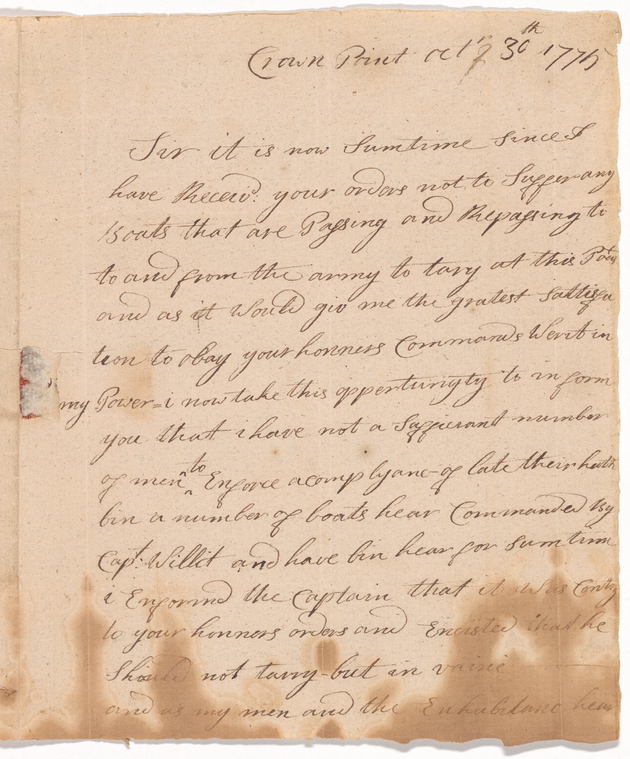 Crown Point octr 30th 1775
Sir it is now Sumtime Since I
have Receivd. your orders not to Suffer any
Boats that are Passing and Repassing to
to and from the army to tary at this
and as it Would giv me the gratest Sattisfa
tion to obay your honners Commands Wer it in
my Power=i now take this opportunity to inform
you that i have not a Sufficiant number
of men to Enforce a complyanc of late their hath
bin a number of boats hear Commanded By
Capt. Willit and have bin hear for Sum time
i Enformd the Captain that it Was Contry
to your honners orders and Encisted that he
Should not tarry but in vaine
and as my men and the Enhabitanc hear